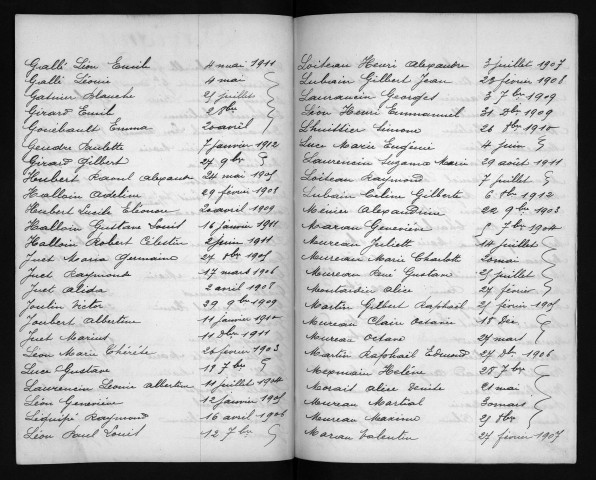 Galli Léon Emil 4 mai 1911
Galli Léonie 4 mai
Gatinier Blanche 25 juillet
Girard Emil 2 8bre
Gombault Emma 20 avril
Gendre Paulette 7 janvier 1912
Girard Gilbert 24 9bre
Herbert Raoul Alexandre 24 mai 1905
Halloin Adeline 29 février 1908
Herbert Lucile Eléonore 20 avril 1909
Halloin Gustave Louis 16 janvier 1911
Halloin Robert Célestin 2 juin 1911
Just Maria Germaine 27 8bre 1905
Just Raymond 17 mars 1906
Just Alida 2 avril 1908
Joulin Victor 29 9bre 1909
Joubert Albertine 11 janvier 1910
Just Marius 11 Xbre 1911
Léon Marie Thérèse 26 février 1903
Luce Gustave 18 7bre
Laurensin Léonie Albertine 11 juillet 1904
Léon Geneviève 12 janvier 1905
Léquipé Raymond 16 avril 1906
Léon Paul Louis 12 7bre
Loiseau Henri Alexandre 3 juillet 1907
Lubain Gilbert Jean 28 février 1908
Laurancin Georges 3 7bre 1909
Léon Henri Emmanuel 31 Xbre 1909
Lhuillier Simone 26 8bre 1910
Luce Marie Eugénie 4 juin
Laurencin Suzanne Marie 29 août 1911
Loiseau Raymond 7 juillet
Lubain Céline Gilberte 6 8bre 1912
Ménier Alexandrine 22 9bre 1903
Mareau Geneviève 8 7bre 1904
Mureau Juliette 14 juillet
Mureau Marie Charlotte 30 mai
Mureau René Gustave 25 juillet
Montardin Alice 27 février
Martin Gilbert Raphaël 25 février 1905
Mureau Claire Octavie 18 Dec
Mureau Octave 24 mars
Martin Raphaël Edmond 27 Xbre 1906
Mexmain Hélène 25 7bre
Morais Alice Denise 21 mai
Mureau Martial 30 mars
Mureau Maxime 25 8bre
Mareau Valentin 27 février 1907